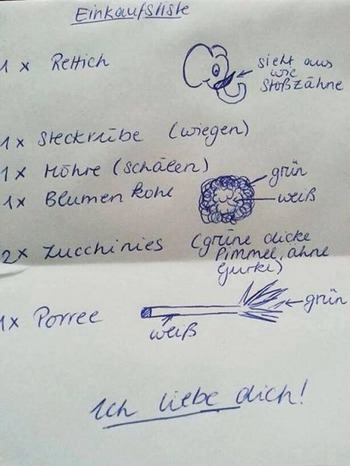 Einkaufsliste
1 x Rettich
sieht aus
wie
Stoßzähne
1 x Steckrübe (wiegen)
1 x Möhre (schälen)
1 x Blumenkohl
grün
weiß
2x Zucchinies (grüne dicke
Pimmel, ähne
Gurke)
1x Porree
grün
weiß
Ich liebe dich!